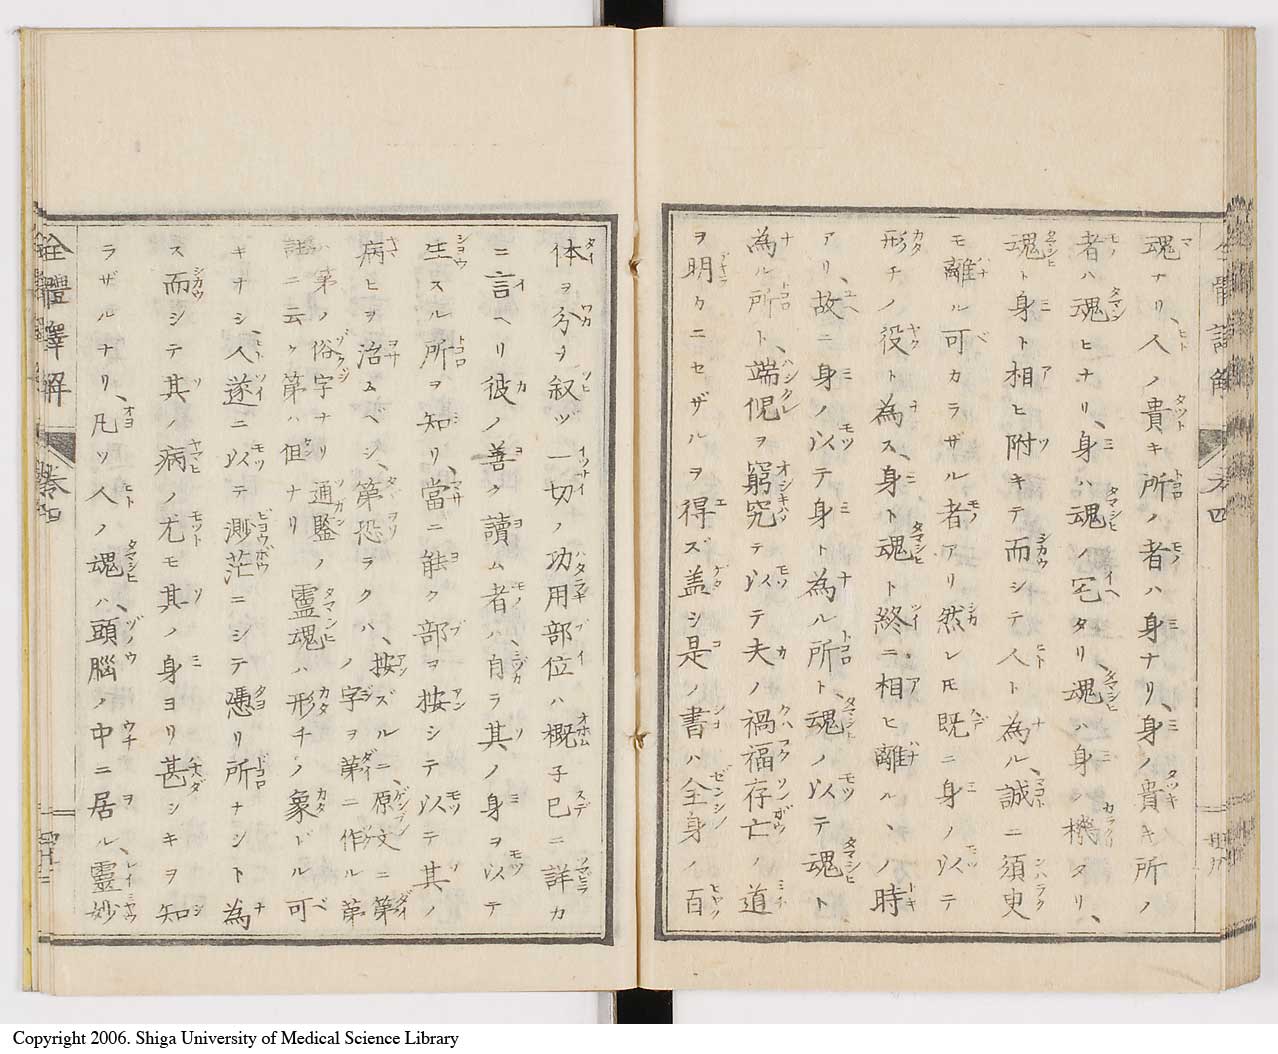 魂ナリ、人ノ貴キ所ノ者ハ身ナリ、身ノ貴キ所ノ
者ハ魂ヒナリ、身ハ魂ノ宅タリ、魂ハ身ノ機タリ、
魂ト身ト相ヒ附キテ而シテ人ト為ル、誠ニ須臾
モ離ル可カラザル者アリ然レ𪜈既ニ身ノ以テ
形チノ役ト為ス、身ト魂ト終ニ相ヒ離ルヽノ時
アリ、故ニ身ノ以テ身ト為ル所ト、魂ノ以テ魂ト
為ル所ト、端倪ヲ窮究テ以テ夫ノ禍福存亡ノ道
ヲ明クニセザルヲ得ズ盖シ是ノ書ハ全身ノ百
体ヲ分ヲ叙ツ一切ノ功用部位ハ概子已ニ詳カ
ニ言ヘリ彼ノ善ク讀ム者ハ、自ラ其ノ身ヲ以テ
生スル所ヲ知リ、當ニ能ク部ヲ按シテ以テ其ノ
病ヒヲ治ムベシ、第恐ラクハ、按ズルニ、原文ニ第
ハ第ノ俗字ナリ通鑒ノノ字ヲ第ニ作ル第
註ニ云ク第ハ但ナリ靈魂ハ形チノ象ドル可
キナシ、人遂ニ以テ渺茫ニシテ憑リ所ナシト為
ス而シテ其ノ病ノ尤モ其ノ身ヨリ甚シキヲ知
ラザルナリ、凡ソ人ノ魂ハ、頭腦ノ中ニ居ル、靈妙
全體譯解
卷四
Copyright 2006. Shiga University of Medical Science Library